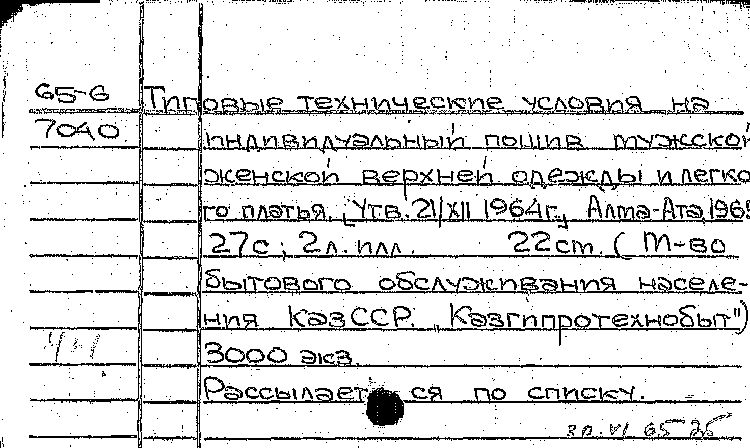 65-6 Типовые технические условия на
7040 индивидуальный пошив мужской
женской верхней одежды и легко
го платья. [Утв. 21/XII 1964г.] Алма-Ата, 1965
27с; 2л. илл. 22см. (М-во
бытового обслуживания населе-
ния КазССР. „Казгипротехнобыт")
3000 экз.
Рассылается по списку.
30.VI 65-25